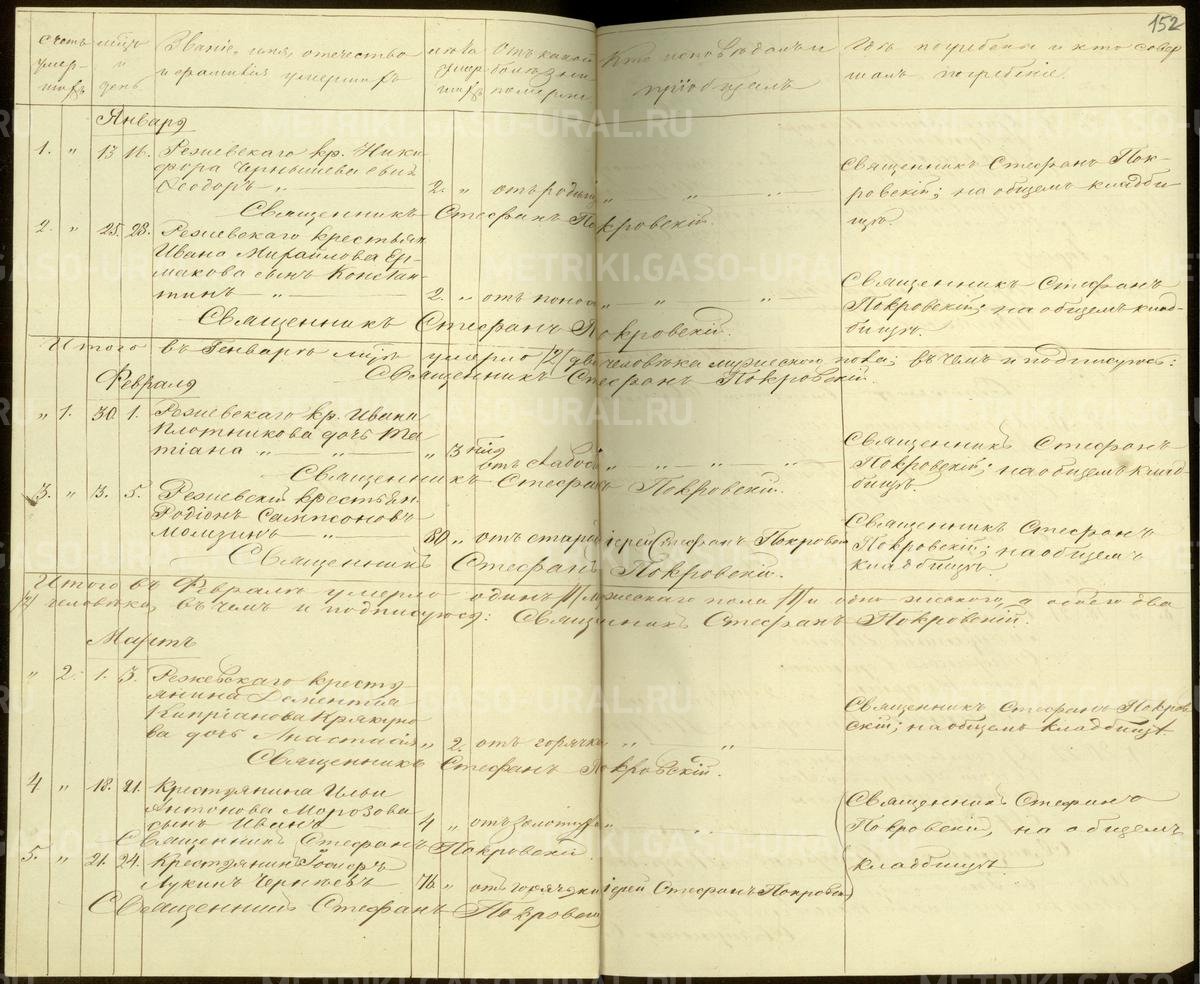 152
Счетъ умер-шихъ
мѣц и день
Званіе, имя, отечество и фамилія умершихъ
лѣта умер шихъ
Отъ какой болѣзни померли
Кто исповѣдалъ и пріобщалъ
Гдѣ погребены и кто совер шалъ погребеніе.
Января
1. „ 13 16. Режевскаго кр. Ники-
фора Чернышева сынъ
Ѳеодоръ — „ — 2. „ отъ родим „ — „ — „
Священникъ Стефанъ Пок-
ровскій; на общемъ кладби-
щѣ.
Священникъ Стефанъ Покровскій.
2. „ 25. 28. Режевскаго крестьян
Ивана Михайлова Ер-
макова сынъ Констан-
тинъ — „ — 2. „ отъ поноса „ — „ — „
Священникъ Стефанъ
Покровскій; на общемъ клад-
бищѣ.
Священникъ Стефанъ Покровскій.
Итого въ Генварѣ мцѣ умерло /2/ два человѣка мужескаго пола; въ чемъ и подписуюсь:
Священникъ Стефанъ Покровскій.
Февраля
„ 1. 30. 1. Режевскаго кр. Ивана
Плотникова дочь Та-
тіана „ „ „ 3 нѣд отъ слабос „ — „ — „ — „
Священникъ Стефанъ
Покровскій; на общемъ клад-
бищѣ.
Священникъ Стефанъ Покровскій.
3. „ 3. 5. Режевскій крестьян
Родіонъ Сампсоновъ
— „ 80 „ отъ старос іерей Стефанъ Покровск
Священникъ Стефанъ
Покровскій; на общемъ
кладбищѣ.
Священникъ Стефанъ Покровскій.
Итого въ Февралѣ умерло одинъ /1/ мужескаго пола /1/ и одна женскаго, а обоего два
/2/ человѣка, въ чемъ и подписуюсь: Священникъ Стефанъ Покровскій.
Мартъ
„ 2. 1. 3. Режевскаго кресть-
янина Дементія
Кипріанова
ва дочь Анастасія „ 2. отъ горячки „ — „
Священникъ Стефанъ Покров-
скій; на общемъ кладбищѣ.
Священникъ Стефанъ Покровскій.
4 „ 18. 21. Крестьянина Ильи
Антонова Морозова
сынъ Иванъ 4 „ отъ золотухи „ „
Священникъ Стефанъ Покровскій
5. „ 21. 24. Крестьянинъ
Лукинъ 76. „ отъ горячки іерей Стефанъ Покровск
Священникъ Стефанъ
Покровскій, на общемъ
кладбищѣ.
Священникъ Стефанъ Покровскій
METRIKI.GASO-URAL.RU